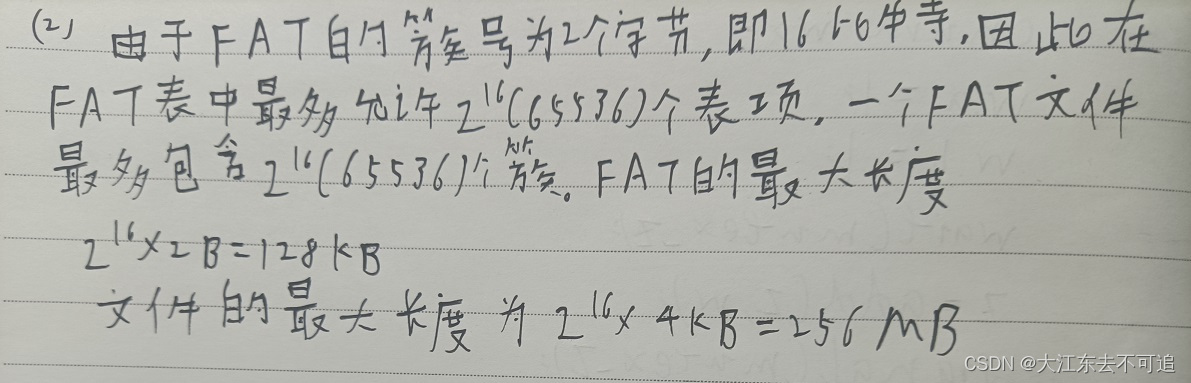 (2) 由于FAT的簇号为2个字节,即16比特,因此在
FAT表中最多允许2^16(65536)个表项,一个FAT文件
最多包含2^16(65536)个簇。FAT的最大长度
2^16×2B=128KB
文件的最大长度为2^16×4KB=256MB
CSDN @大江东去不可追